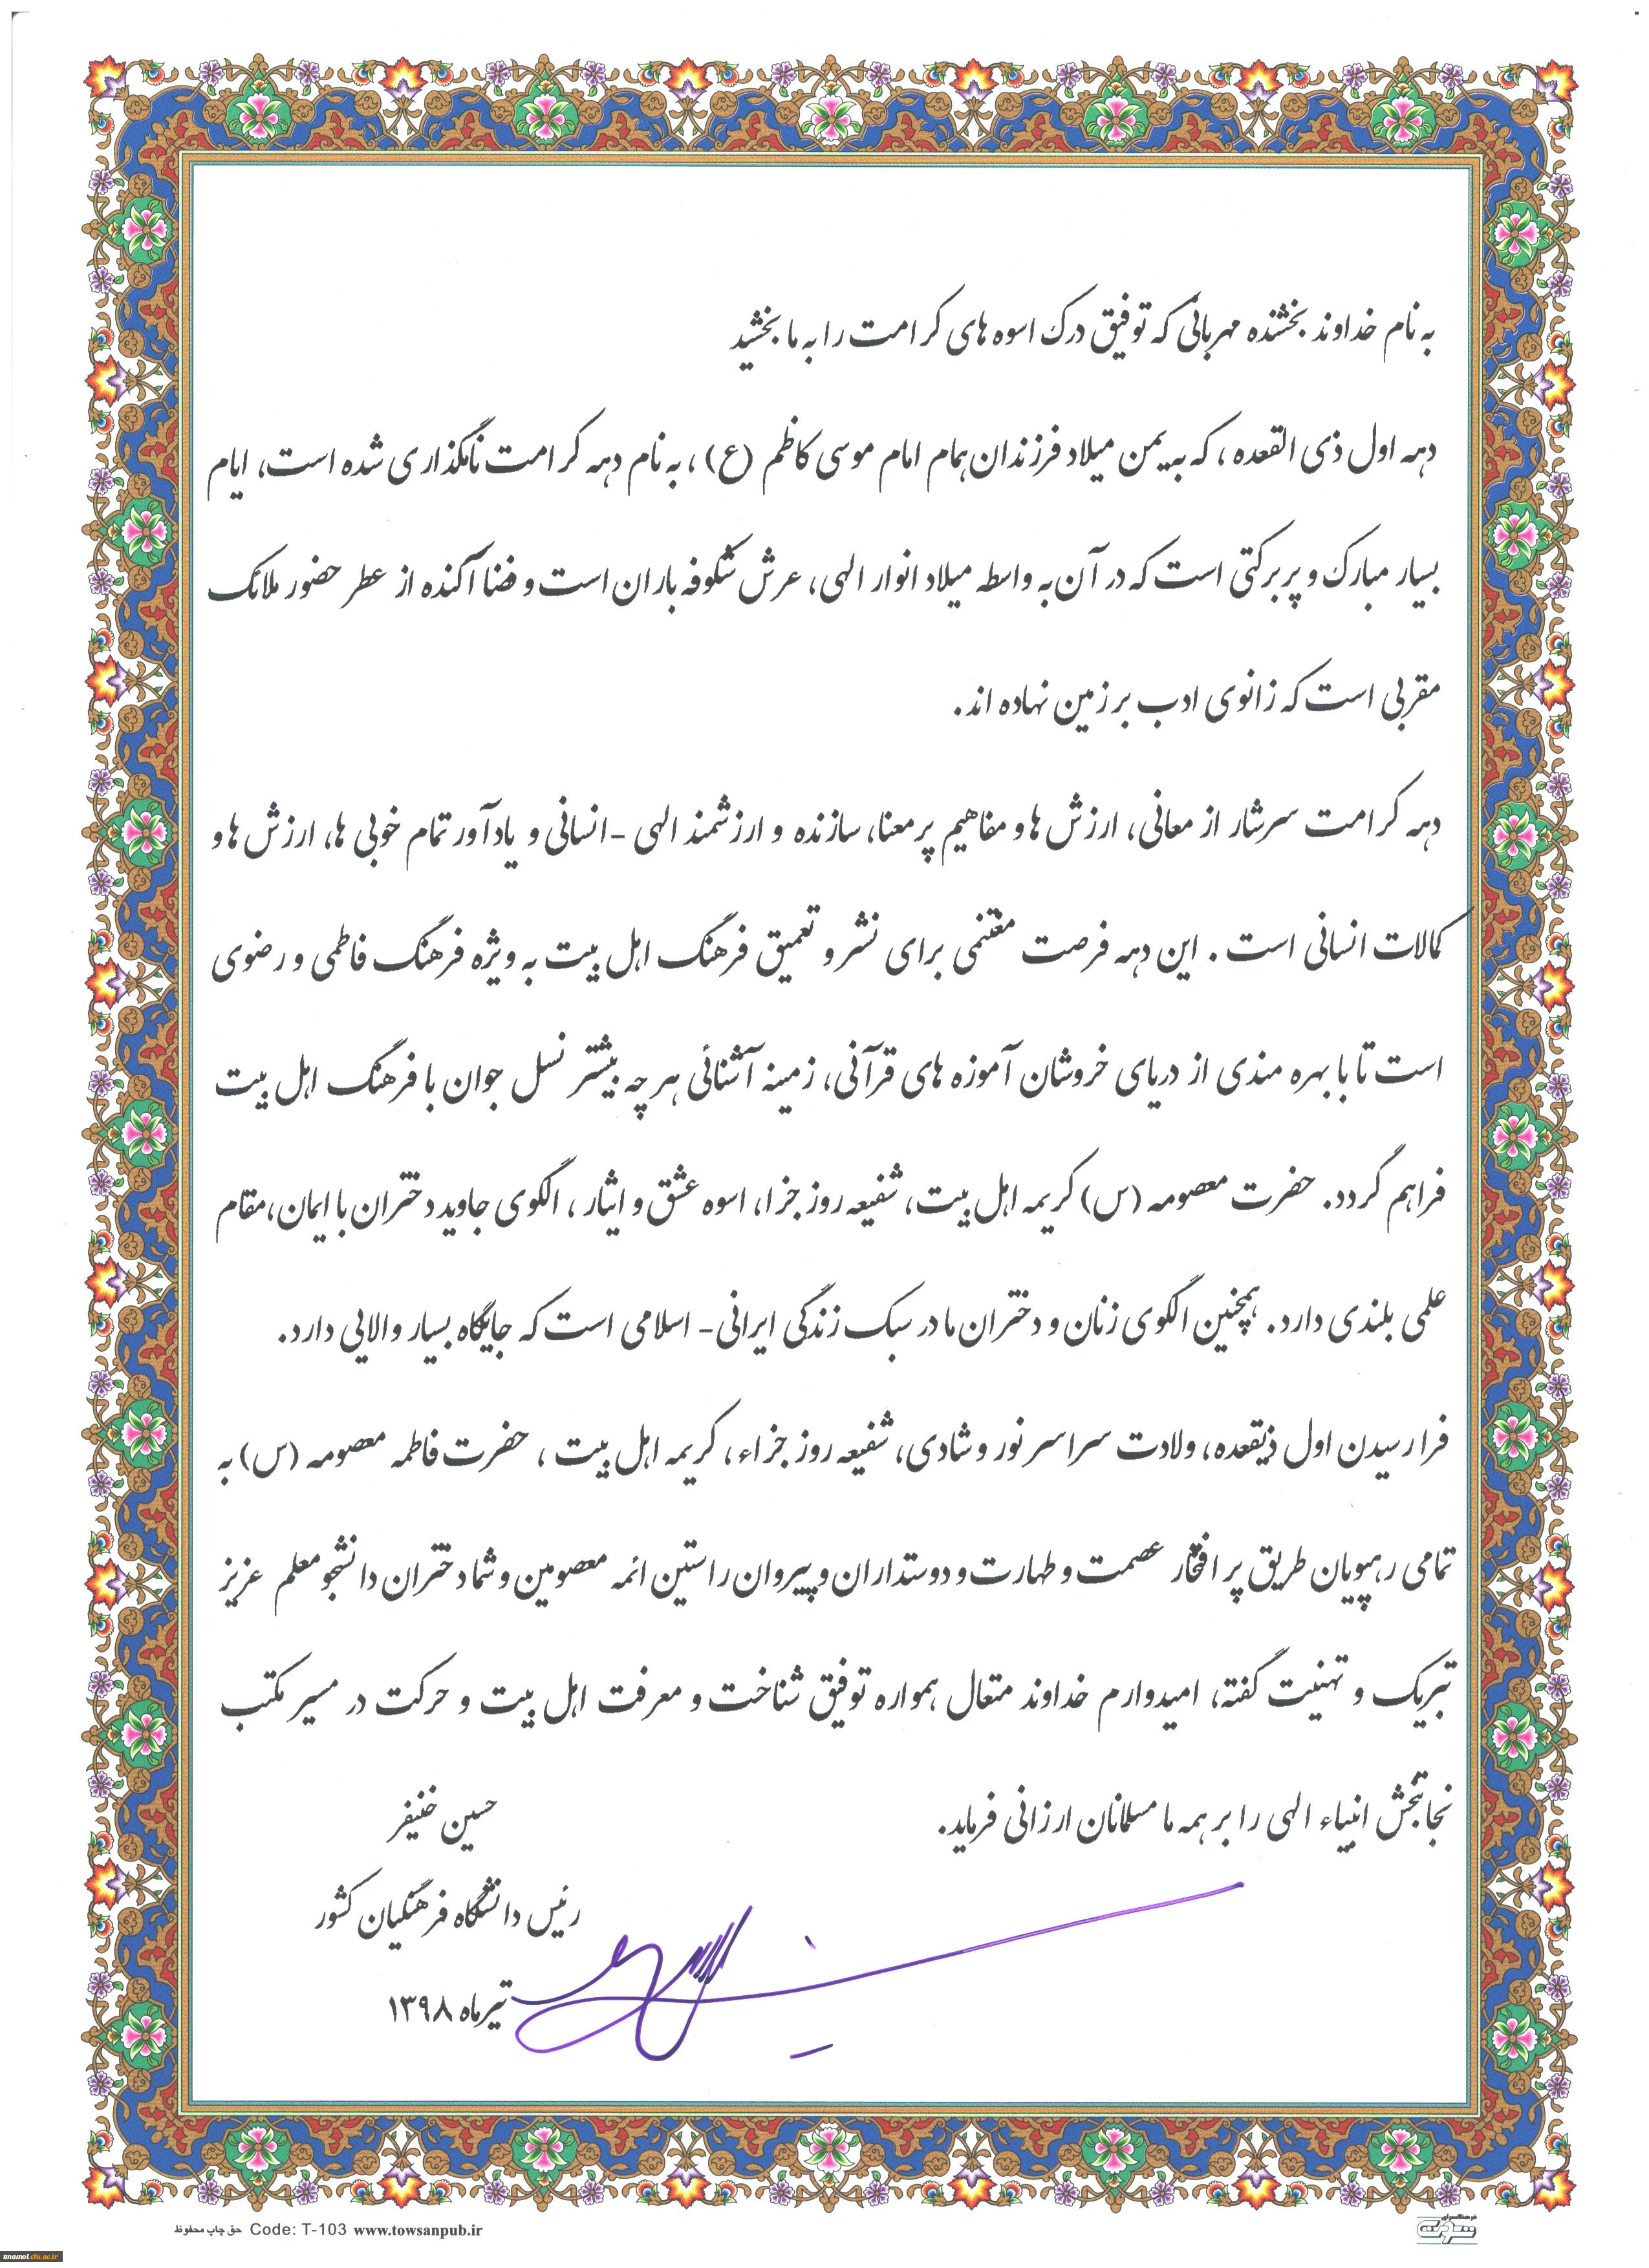 به نام خداوند بخشنده مهربانی که توفیق درک اسوه های کرامت را به ما بخشید
دهه اول ذی القعده، که به یمن میلاد فرزندان همام امام موسی کاظم (ع)، به نام دهه کرامت نامگذاری شده است، ایام
بسیار مبارک و پر برکتی است که در آن به واسطه میلاد انوار الهی، عرش شکوفه باران است و فضا آکنده از عطر حضور ملائک
مقربی است که زانوی ادب بر زمین نهاده اند.
دهه کرامت سرشار از معانی، ارزش ها و مفاهیم پر معنا، سازنده و ارزشمند الهی -انسانی و یادآور تمام خوبی ها، ارزش ها و
کمالات انسانی است . این دهه فرصت مغتنمی برای نشر و تعمیق فرهنگ اهل بیت به ویژه فرهنگ فاطمی و رضوی
است تا با بهره مندی از دریای خروشان آموزه های قرآنی، زمینه آشنائی هر چه بیشتر نسل جوان با فرهنگ اهل بیت
فراهم گردد. حضرت معصومه (س) کریمه اهل بیت، شفیعه روز جزا، اسوه عشق و ایثار ، الگوی جاوید دختران با ایمان،مقام
علمی بلندی دارد. همچنین الگوی زنان و دختران ما در سبک زندگی ایرانی- اسلامی است که جایگاه بسیار والایی دارد.
فرا رسیدن اول ذیقعده، ولادت سراسر نور و شادی، شفیعه روز جزاء، کریمه اهل بیت ، حضرت فاطمه معصومه (س) به
تمامی رهپویان طریق پر افتخار عصمت و طهارت و دوستداران و پیروان راستین ائمه معصومین و شما دختران دانشجو معلم عزیز
تبریک و تهنیت گفته، امیدوارم خداوند متعال همواره توفیق شناخت و معرفت اهل بیت و حرکت در مسیر مکتب
نجاتبخش انبیاء الهی را بر همه ما مسلمانان ارزانی فرماید.
حسین خنیفر
رئیس دانشگاه فرهنگیان کشور
تیرماه ۱۳۹۸
حق چاپ محفوظ Code: T-103 www.towsanpub.ir
imamol.cfu.ac.ir